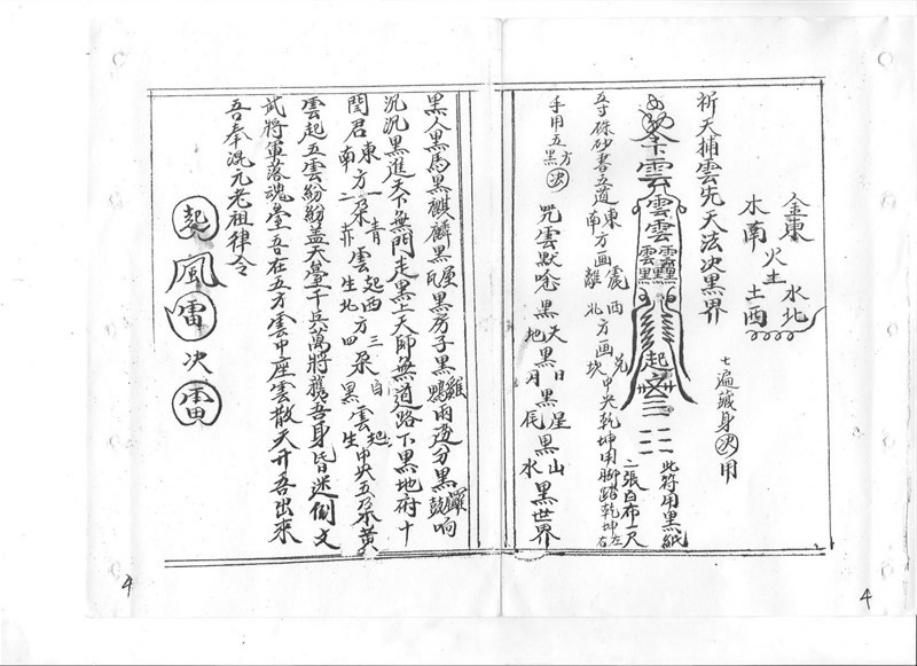 金東
水南
火土
水北
土西
七遍藏身決用
祈天捕雲先天法決黑界
雲
雲雲
起
此符用黑紙
二張白布一尺
五寸硃砂書立道東方画震西兌
南方画離北方画坎中央乾坤用腳踏乾坤左右
手用五方黑決
咒雲默唸黑天黑日黑星黑山黑世界
地月尾水
黑人黑馬黑麒麟黑屋黑瓦黑房子黑雞鴨兩邊分黑鑼鼓响
沉沉黑進天下無門走黑上天師無道路下黑地府十
閻君東方一朵青雲起西方三朵白雲起中央五朵黃
南二赤生北四黑生
雲起五雲紛紛盖天臺千兵萬將護吾身皆迷倒文
武將軍落魂堂吾在五方雲中座雲散天开吾出來
吾奉混元老祖律令
起風雷次雷
4
4